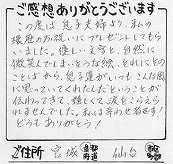 ご感想ありがとうございます
この度は息子夫婦より、私の
還暦のお祝いにプレゼントしてもら
いました。優しい文字と自然に
微笑んでしまいそうな絵、それにその
ことばから、息子達がいつもこんな風
に思っていてくれたんだということが
伝わってきて、嬉しくて涙をこらえら
れませんでした。私は幸わせ者です!
どうもありがとう!
ご住所 宮城 仙台